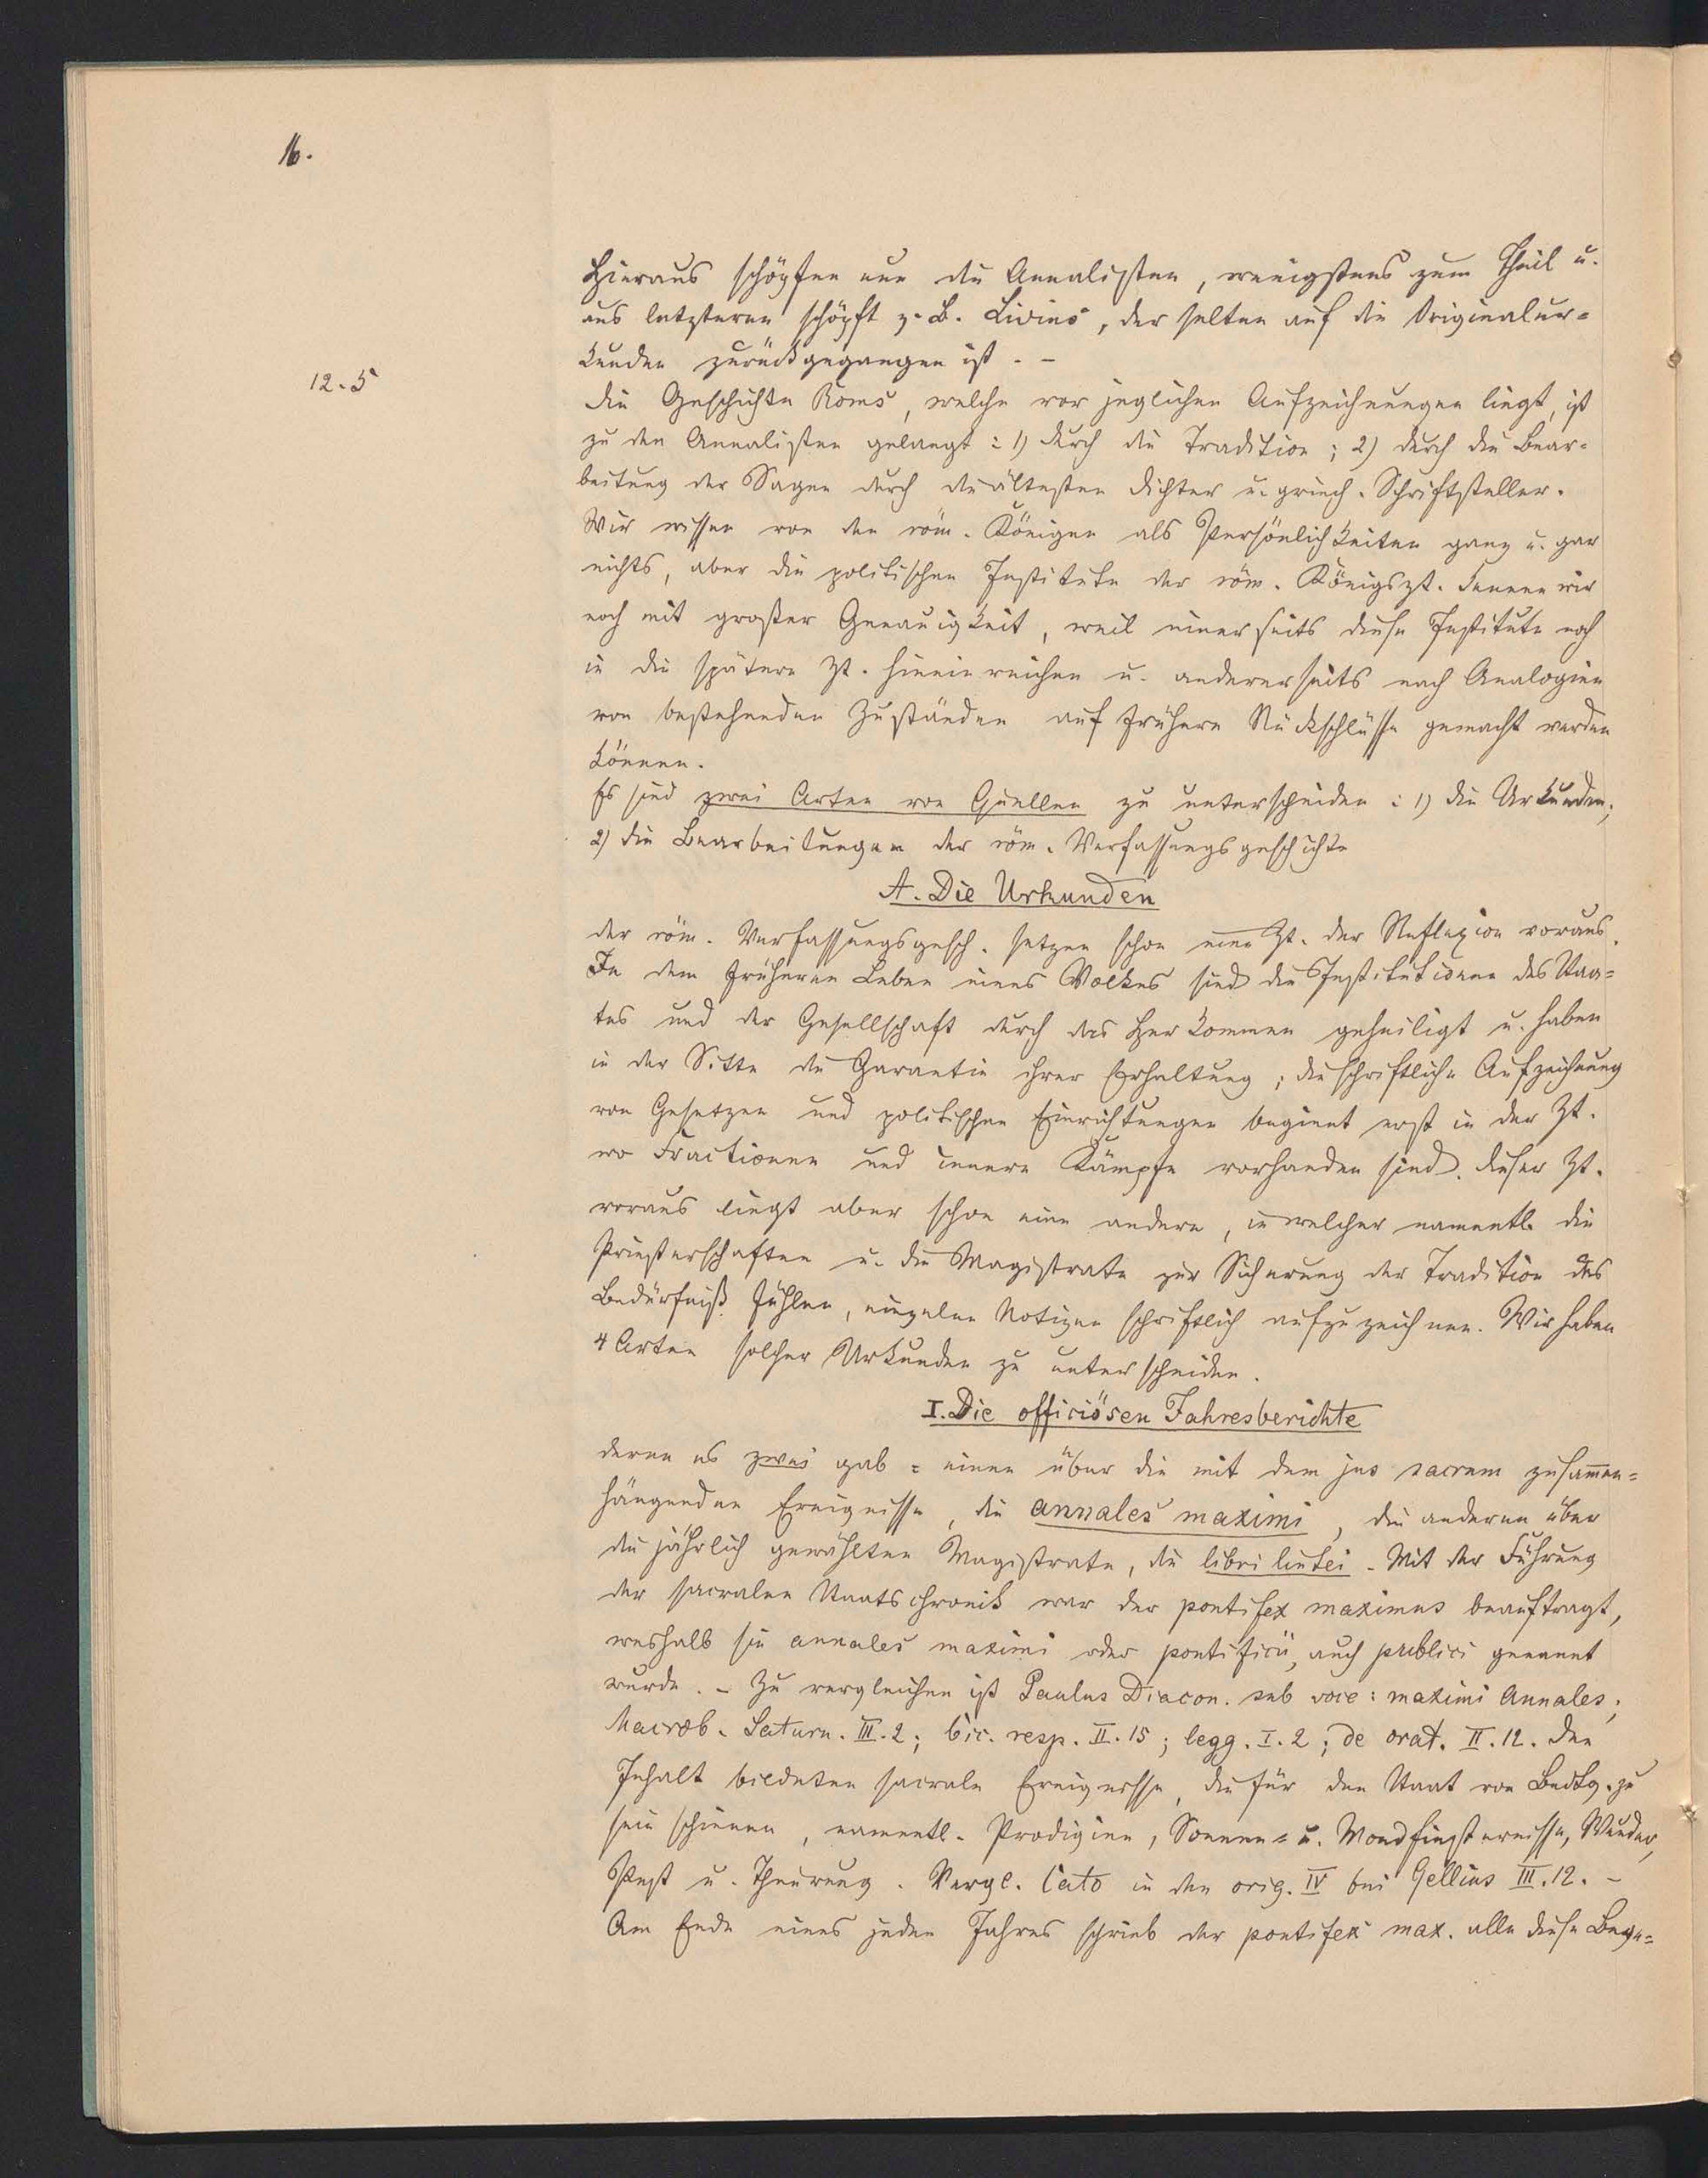 16.
Hieraus schöpfen nun die Annalisten, wenigstens zum Theil u.
aus letzteren schöpft z. B. Livius, der selten auf die Originalur=
kunden zurückgegangen ist. –
12.5
Die Geschichte Roms, welche vor jeglichen Aufzeichnungen liegt, ist
zu den Annalisten gelangt: 1) durch die Tradition; 2) durch die Bear=
beitung der Sagen durch die ältesten Dichter u. griech. Schriftsteller.
Wir wissen von den röm. Königen als Persönlichkeiten ganz u. gar
nichts, aber die politischen Institute der röm. Königszt. kennen wir
noch mit großer Genauigkeit, weil einerseits diese Institute noch
in die spätere Zt. hineinreichen u. andererseits nach Analogien
von bestehenden Zuständen auf frühere Rückschlüsse gemacht werden
können.
Es sind zwei Arten von Quellen zu unterscheiden: 1) die Urkunden;
2) die Bearbeitungen der röm. Verfassungsgeschichte
A. Die Urkunden
der röm. Verfassungsgesch. setzen schon eine Zt. der Reflexion voraus.
In dem früheren Leben eines Volkes sind die Institutionen des Staa=
tes und der Gesellschaft durch das Herkommen geheiligt u. haben
in der Sitte die Garantie ihrer Erhaltung; die schriftliche Aufzeichnung
von Gesetzen und politischen Einrichtungen beginnt erst in der Zt.
wo Fractionen und innere Kämpfe vorhanden sind. Dieser Zt.
voraus liegt aber schon eine andere, in welcher namentl. die
Priesterschaften u. die Magistrate zur Sicherung der Tradition das
Bedürfniß fühlen, einzelne Notizen schriftlich aufzuzeichnen. Wir haben
4 Arten solcher Urkunden zu unterscheiden.
I. Die officiösen Jahresberichte
deren es zwei gab: einen über die mit dem jus sacrum zusammen=
hängenden Ereignisse, die annales maximi, die anderen über
die jährlich gewählten Magistrate, die libri lintei. Mit der Führung
der sacralen Staatschronik war der pontifex maximus beauftragt,
weshalb sie annales maximi oder pontificii, auch publici genannt
wurde. – Zu vergleichen ist Paulus Diacon. sub voce: maximi annales;
Macrob. Saturn. III. 2; Cic. resp. II. 15; legg. I. 2; de orat. II. 12. Den
Inhalt bildeten sacrale Ereignisse, die für den Staat von Bedtg. zu
sein schienen, namentl. Prodigien, Sonnen= u. Mondfinsternisse, Wunder,
Pest u. Theurung. Vergl. Cato in den orig. IV bei Gellius III. 12. –
Am Ende eines jeden Jahres schrieb der pontifex max. alle diese Bege=